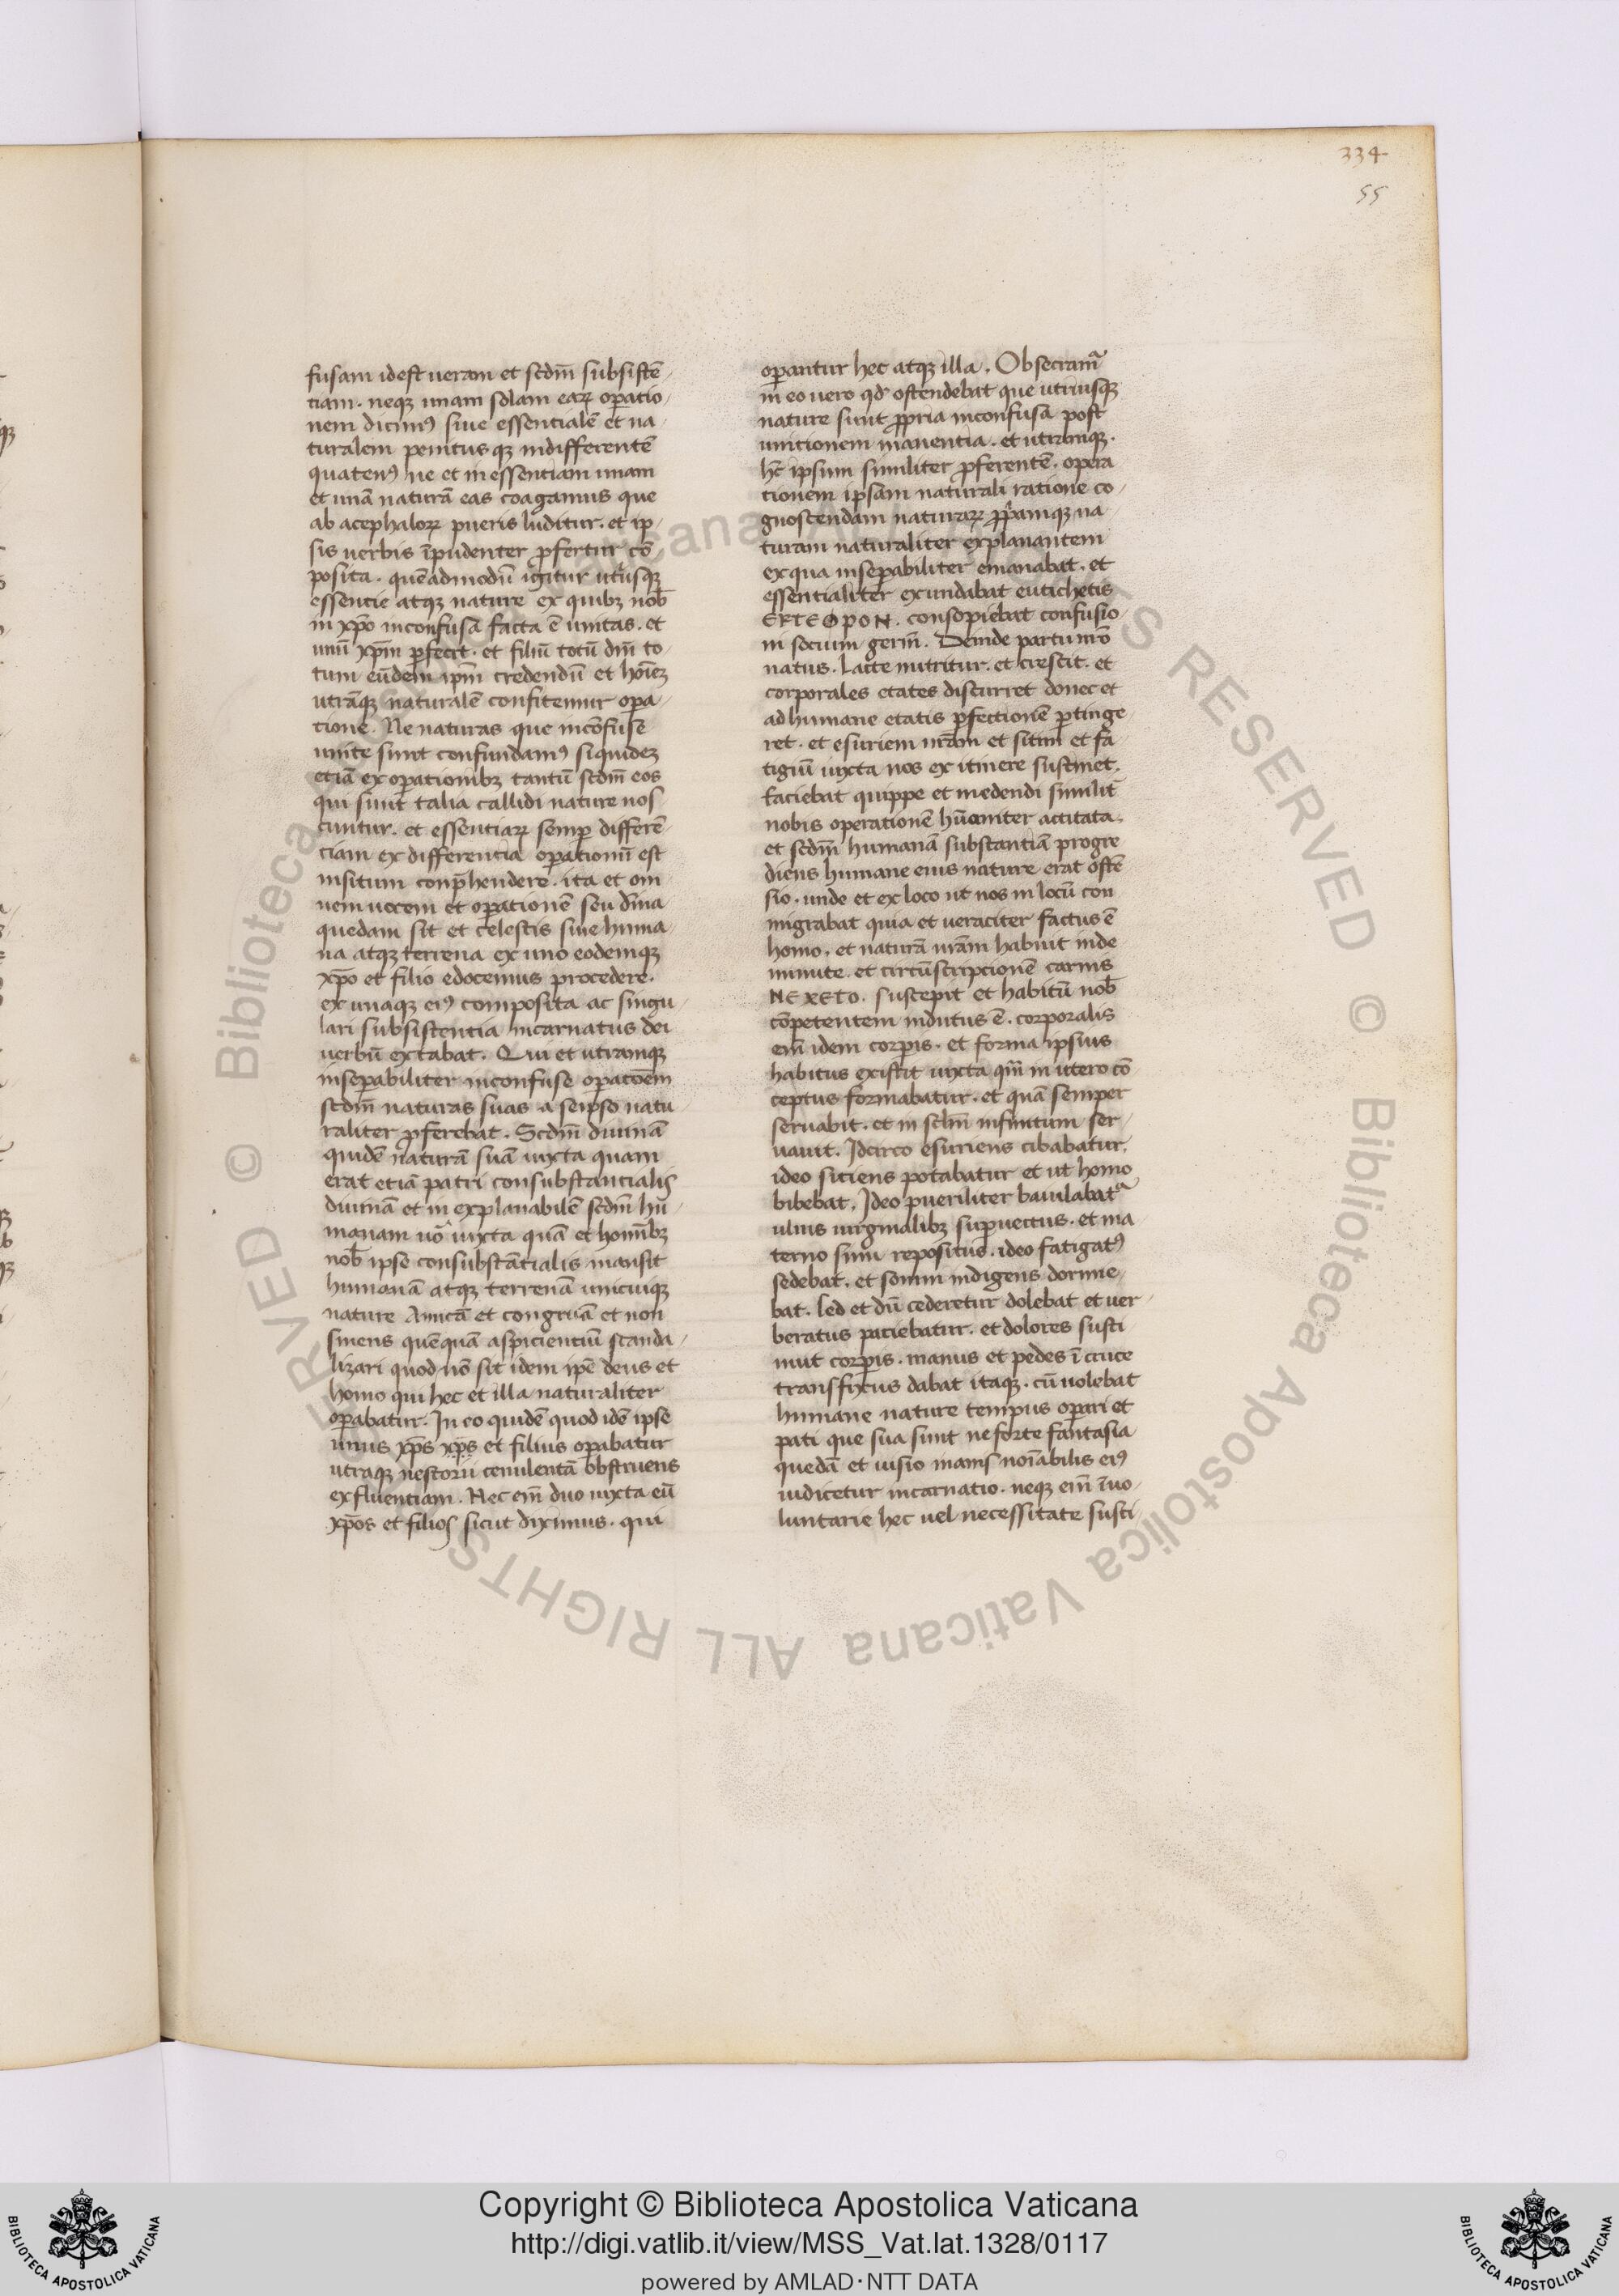 334
55
fusam idest ueram et scdm̄ subsistē
tiam. neqꝫ unam solam eaꝝ oꝑatio
nem dicimꝰ siue essentialē et na
turalem penitusqꝫ indifferentē
quatenꝰ ne et in essentiam unam
et unā naturā eas coagamus que
ab acephaloꝝ pueris luditur. et ip
sis uerbis īpudenter ꝓfertur cō
posita. quēadmodū igitur utriusqꝫ
essentie atqꝫ nature ex quibꝫ nob̄
in xp̄o inconfusa facta ē unitas. et
unū xp̄m ꝑfecit. et filiū totū dm̄ to
tum eūdem ip̄m credendū et hoīeꝫ
utrāqꝫ naturalē confitemur oꝑa
tionē. Ne naturas que incōfuse
unite sunt confundamꝰ siquideꝫ
etiā ex oꝑationibꝫ tantū scdm̄ eos
qui sunt talia callidi nature nos
cuntur. et essentiaꝝ semꝑ differē
ciam ex differentia oꝑationū est
insitum conp̄hendere. ita et om
nem uocem et oꝑationē seu diuina
quedam sit et celestis siue huma
na atqꝫ terrena ex uno eodemqꝫ
xp̄o et filio edocemus procedere.
ex unaqꝫ eiꝰ composita ac singu
lari subsistentia incarnatus dei
uerbū extabat. Qui et utramqꝫ
inseꝑabiliter inconfuse oꝑatōem
scdm̄ naturas suas a seipso natu
raliter ꝓferebat. Scdm̄ diuinā
quidē naturā suā iuxta quam
erat etiā patri consubstancialis
diuinā et in explanabilē scdm̄ hu
manam uō iuxta quā et hominibꝫ
nob̄ ipse consubstātialis mansit
humanā atqꝫ terrenā unicuiqꝫ
nature Amicā et congruā et non
sinens quēquā aspicientiū scanda
lizari quod nō sit idem ip̄e deus et
homo qui hec et illa naturaliter
oꝑabatur. In eo quidē quod idē ipse
unus xp̄s xp̄s et filius oꝑabatur
utraqꝫ nestorii cenulentā obstruens
exfluentiam. Nec em̄ duo iuxta eū
xp̄os et filios sicut diximus. qui
oꝑantur hec atqꝫ illa. Obsecramr̄
in eo uero qd̓ ostendebat que utriusqꝫ
nature sunt ꝓpria inconfusa post
unitionem manentia. et utrumqꝫ.
hͨ ipsum similiter ꝓferentē. opera
tionem ipsam naturali ratione co
gnoscendam naturaꝝ ꝓpriamqꝫ na
turam naturaliter explanantem
ex qua inseꝑabiliter emanabat. et
essentialiter exundabat eutichetis
EKTEOPON. consopiebat confusio
in socium germ̄. Deinde partu nr̄o
natus. Lacte nutritur. et crescit. et
corporales etates discurret donec et
ad humane etatis ꝑfectionē ꝑtinge
ret. et esuriem nr̄am et sitim et fa
tigiū iuxta nos ex itinere sustinet.
faciebat quippe et medendi similit̄
nobis operationē hūaniter actitata.
et scdm̄ humanā substantiā progre
diens humane eius nature erat ostē
sio. unde et ex loco ut nos in locū con
migrabat quia et ueraciter factus ē
homo. et naturā nr̄am habuit inde
minute. et circūscripcionē carnis
NEXETO. suscepit et habitū nob̄
cōpetentem indutus ē. corporalis
em̄ idem corꝑis. et forma ipsius
habitus existit iuxta qm̄ in utero cō
ceptus formabatur. et quā semper
seruabit. et in sclm̄ infinitum ser
uauit. Idcirco esuriens cibabatur.
ideo siciens potabatur et ut homo
bibebat. Ideo pueriliter bauilabatr̄
ulnis uirginalibꝫ suꝑuectus. et ma
terno sinu repositus. ideo fatigatꝰ
sedebat. et somni indigens dormie
bat. sed et dū cederetur dolebat et uer
beratus paciebatur. et dolores susti
nuit corꝑis. manus et pedes ī cruce
transfixus dabat itaqꝫ. cū uolebat
humane nature tempus oꝑari et
pati que sua sunt ne forte fantasia
quedā et uisio inanis noīabilis eiꝰ
iudicetur incarnatio. neqꝫ em̄ īuo
luntarie hec uel necessitate susti
© Biblioteca Apostolica Vaticana ALL RIGHTS RESERVED © Biblioteca Apostolica Vaticana ALL RIGHTS RESERVED
BIBLIOTECA APOSTOLICA VATICANA
Copyright © Biblioteca Apostolica Vaticana
http://digi.vatlib.it/view/MSS_Vat.lat.1328/0117
powered by AMLAD·NTT DATA
BIBLIOTECA APOSTOLICA VATICANA